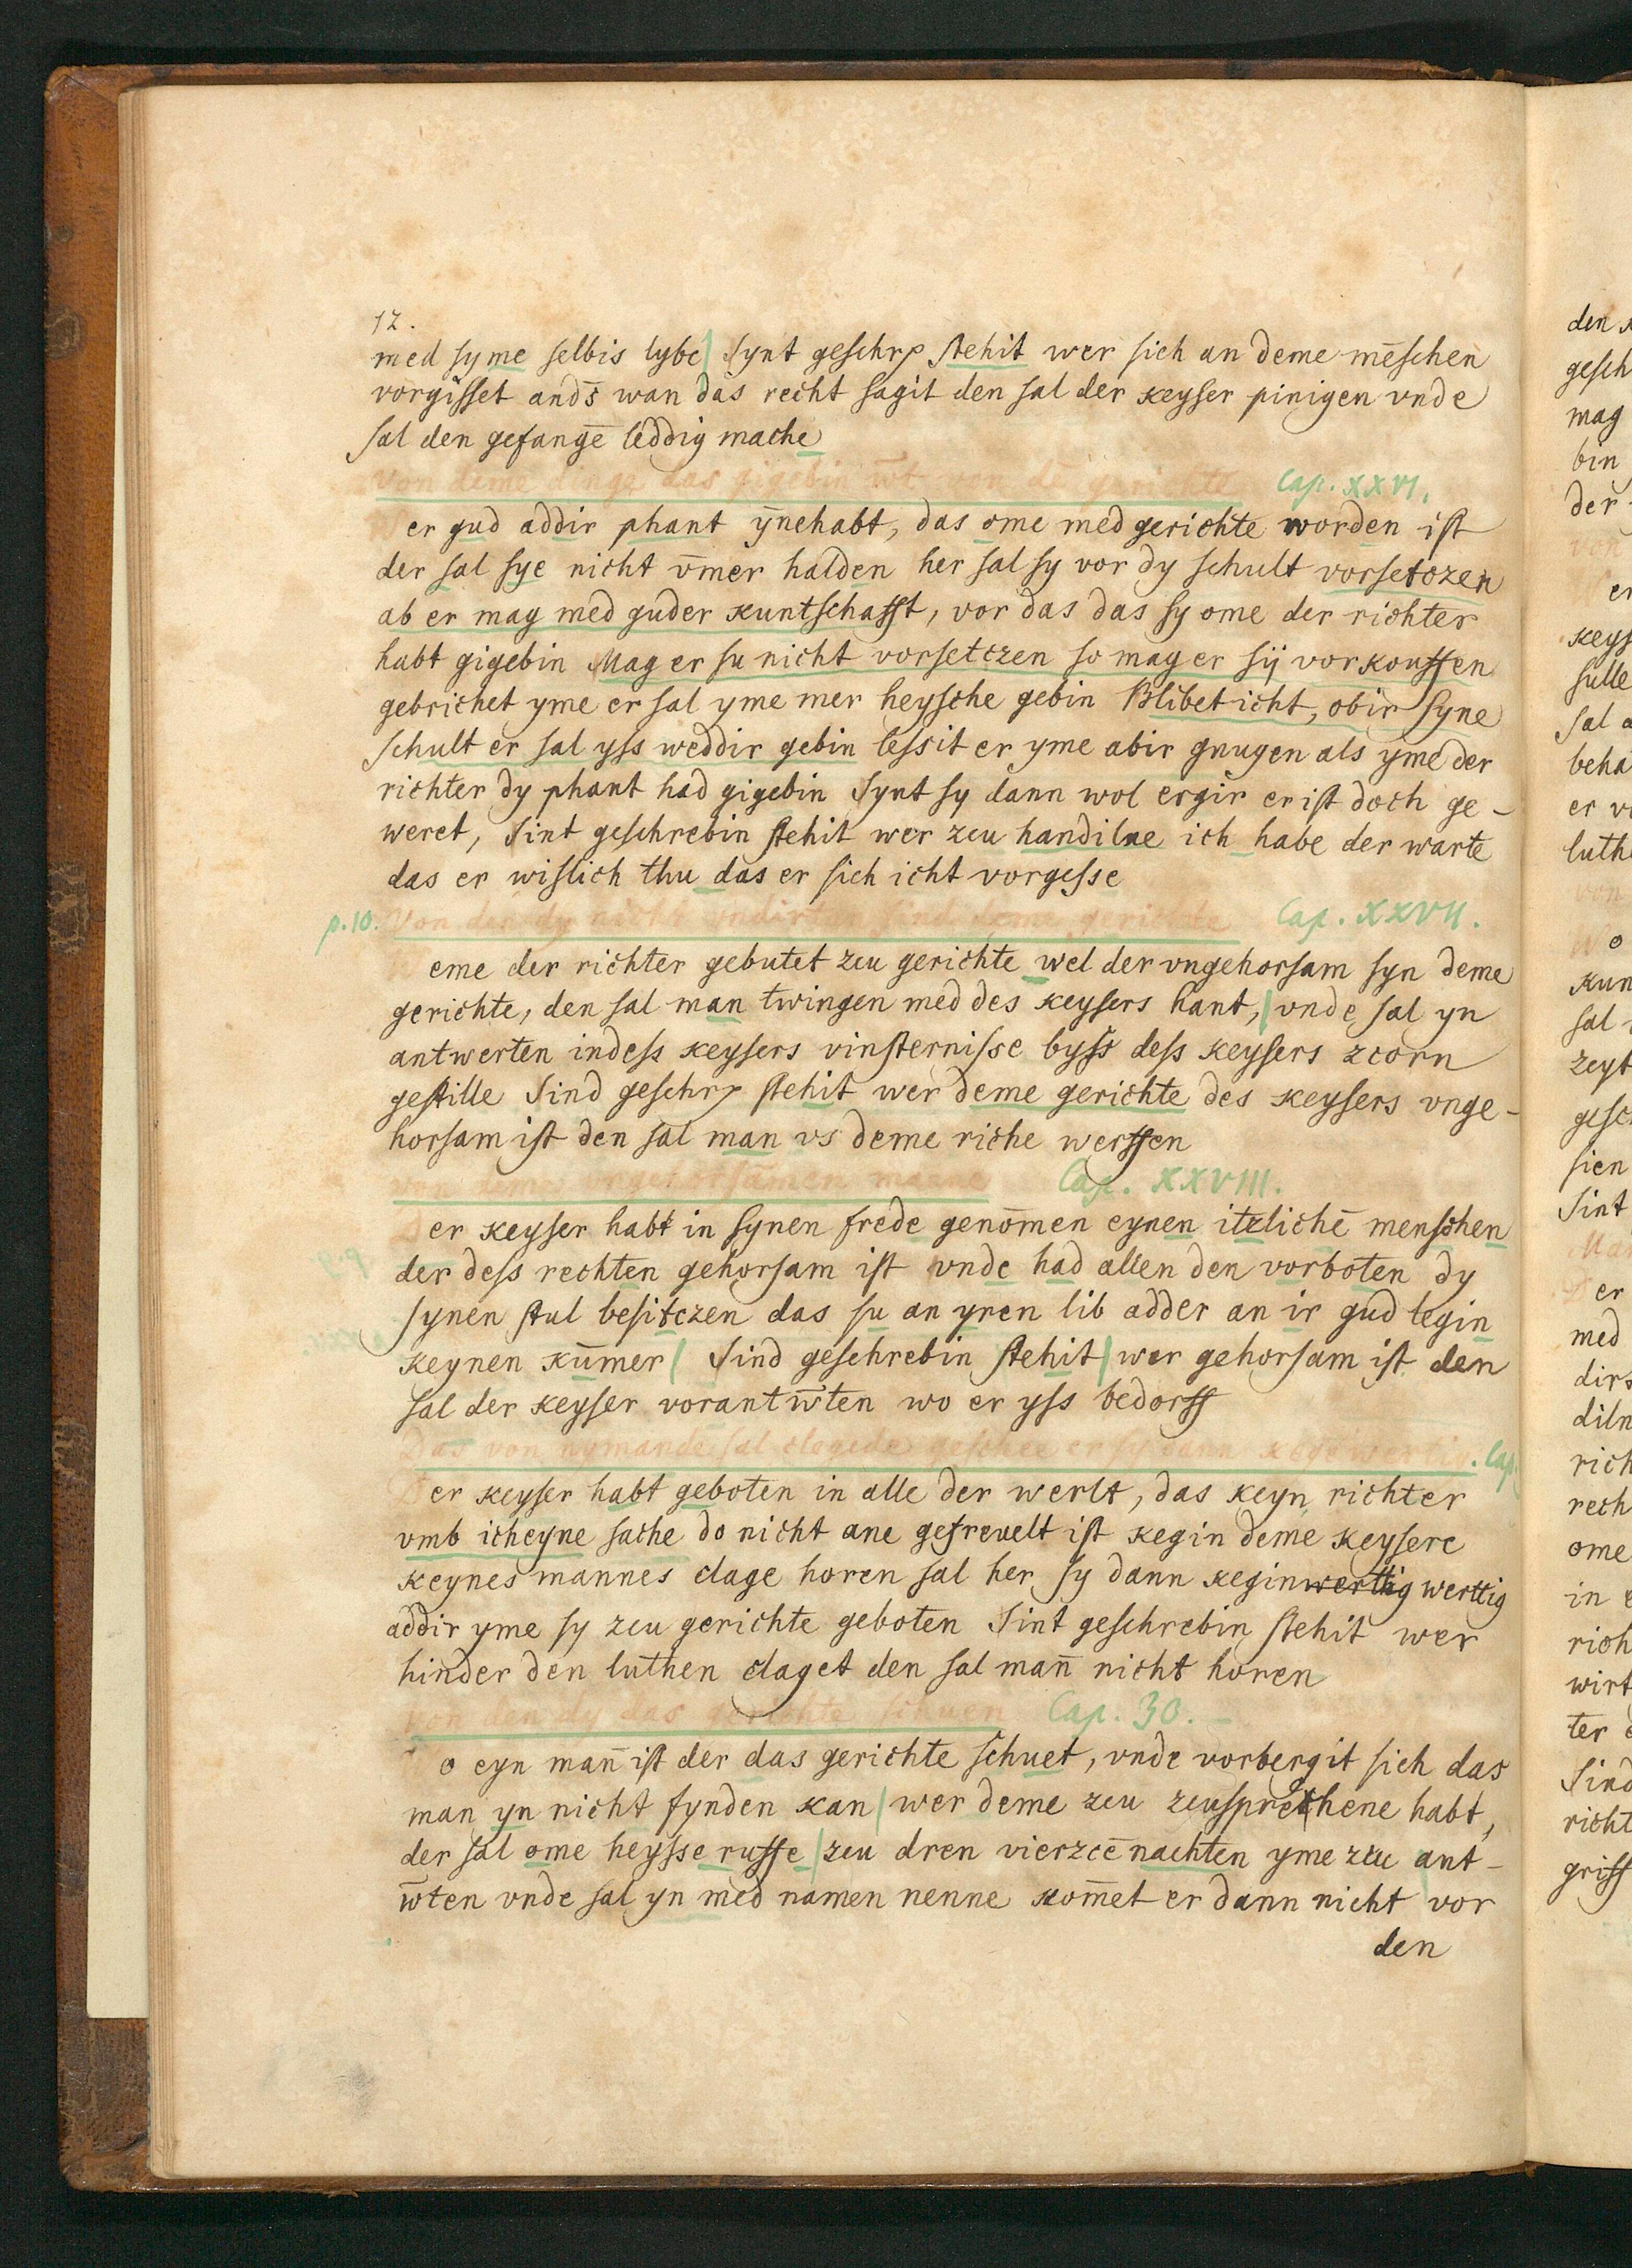 12.
med syme selbis lybe| Synt geschrp stehit wer sich an deme mēschen
vorgisset ands̄ wan das recht sagit den sal der keyser pinigen vnde
sal den gefangē leddig mache
Von deme dinge das gigebin wt von dē gerichte Cap. XXVI.
er gud addir phant ȳnehabt, das ome med gerichte worden ist
der sal sye nicht v̄mer halden her sal sy vor dy schult vorsetczen
ab er mag med guder kuntschafft, vor das das sy ome der richter
habt gigebin Mag er su nicht vorsetczen so mag er sij vorkouffen
gebrichet yme er sal yme mer heysche gebin Blibet icht, obir syne
schult er sal yss weddir gebin lessit er yme abir gnugen als yme der
richter dy phant had gigebin Synt sy dann wol ergir er ist doch ge-
weret, Sint geschrebin stehit wer zcu handilne ich habe der warte
das er wislich thu das er sich icht vorgesse
p. 10. Von den dy nicht vndirtan sind deme gerichte Cap. XXVII.
eme der richter gebutet zcu gerichte wel der vngehorsam syn deme
gerichte, den sal man twingen med des keysers hant,| vnde sal yn
antwerten indess keysers vinsternisse byss dess keysers zcorn
gestille Sind geschrp stehit wer deme gerichte des keysers vnge-
horsam ist den sal man vs deme riche werffen
von deme vngehorsamen manne Cap. XXVIII.
er keyser habt in synen frede genōmen eynen itzlichē menschen
der dess rechten gehorsam ist vnde had allen den vorboten dy
synen stul besitczen das su an yren lib adder an ir gud legin
keynen kūmer| Sind geschrebin stehit| wer gehorsam ist den
sal der keyser vorantw̄ten wo er yss bedorff
Das von nymande sal clagede geschee er sy dann kegēwertig. Cap.
er keyser habt geboten in alle der werlt, das keyn richter
vmb icheyne sache do nicht ane gefreuelt ist kegin deme keysere
keynes mannes clage horen sal her sy dann keginwerttig werttig
addir yme sy zcu gerichte geboten Sint geschrebin stehit wer
hinder den luthen claget den sal man̄ nicht horen
von den dy das gerichte schuen Cap. 30.
o eyn man̄ ist der das gerichte schuet, vnde vorbergit sich das
man yn nicht fynden kan| wer deme zcu zcusprechene habt,
der sal ome heysse ruffe| zcu dren vierzcē nachten yme zcu ant-
w̄ten vnde sal yn med namen nenne kom̄et er dann nicht vor
den